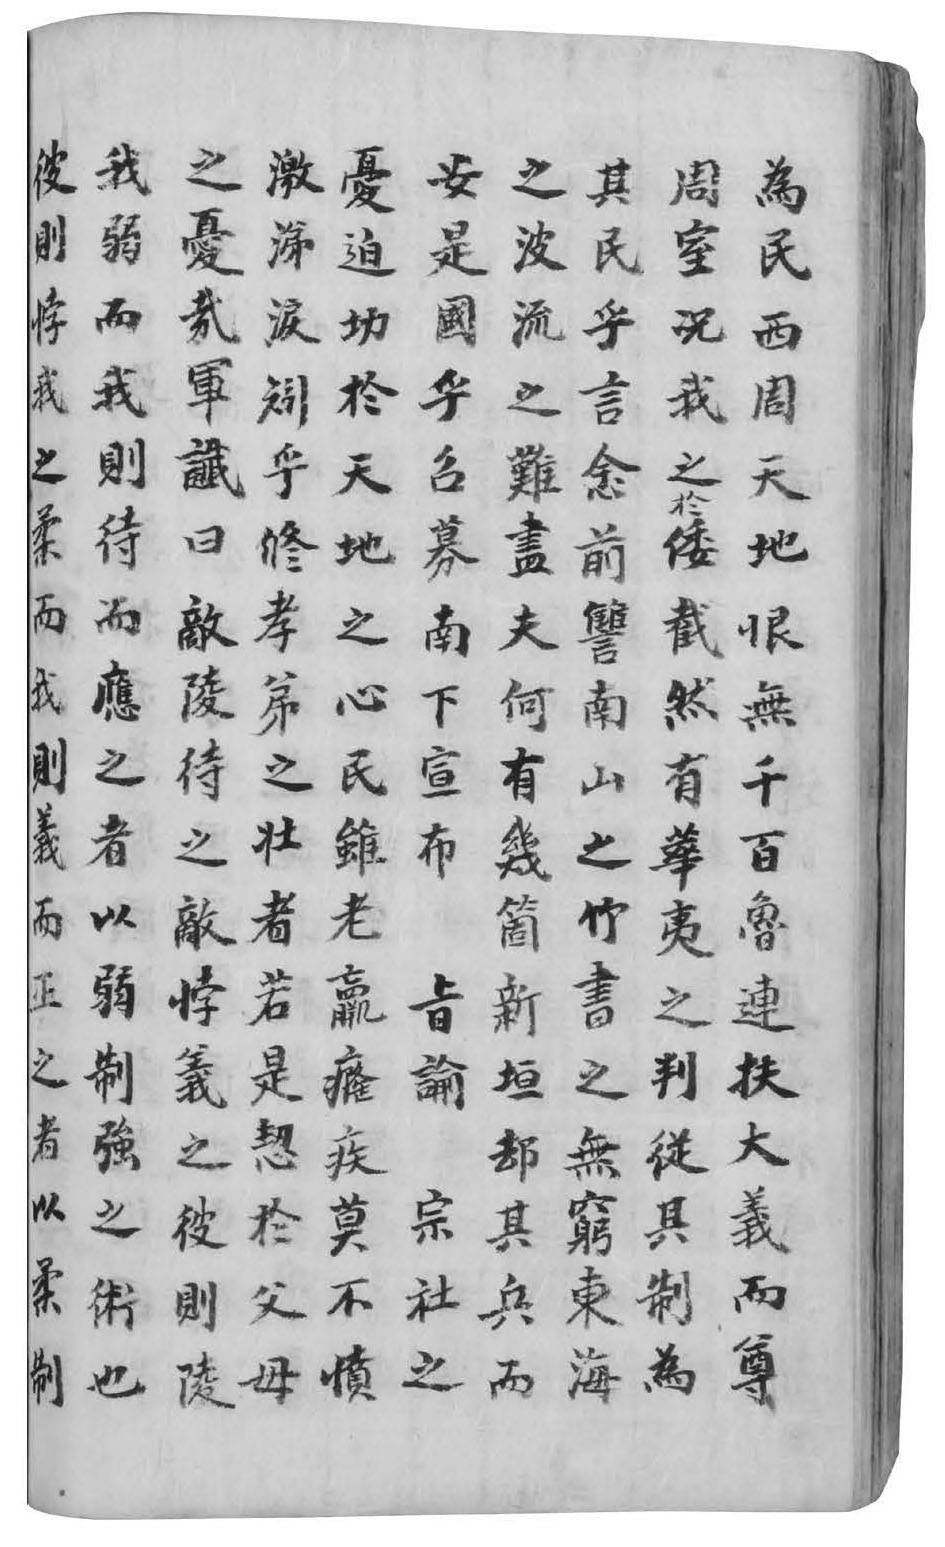 為民西周天地恨無千百魯連扶大義而尊
周室况我之於倭截然有華夷之判從其制為
其民乎言念前讐南山之竹書之無窮東海
之波流之難盡夫何有幾箇新垣却其兵而
安是國乎召募南下宣布 旨諭 宗社之
憂迫切於天地之心民雖老羸癃疾莫不憤
激涕淚矧乎修孝弟之壯者若是恝於父母
之憂哉軍讖曰敵陵待之敵悖義之彼則陵
我弱而我則待而應之者以弱制強之術也
彼則悖我之柔而我則義而正之者以柔制